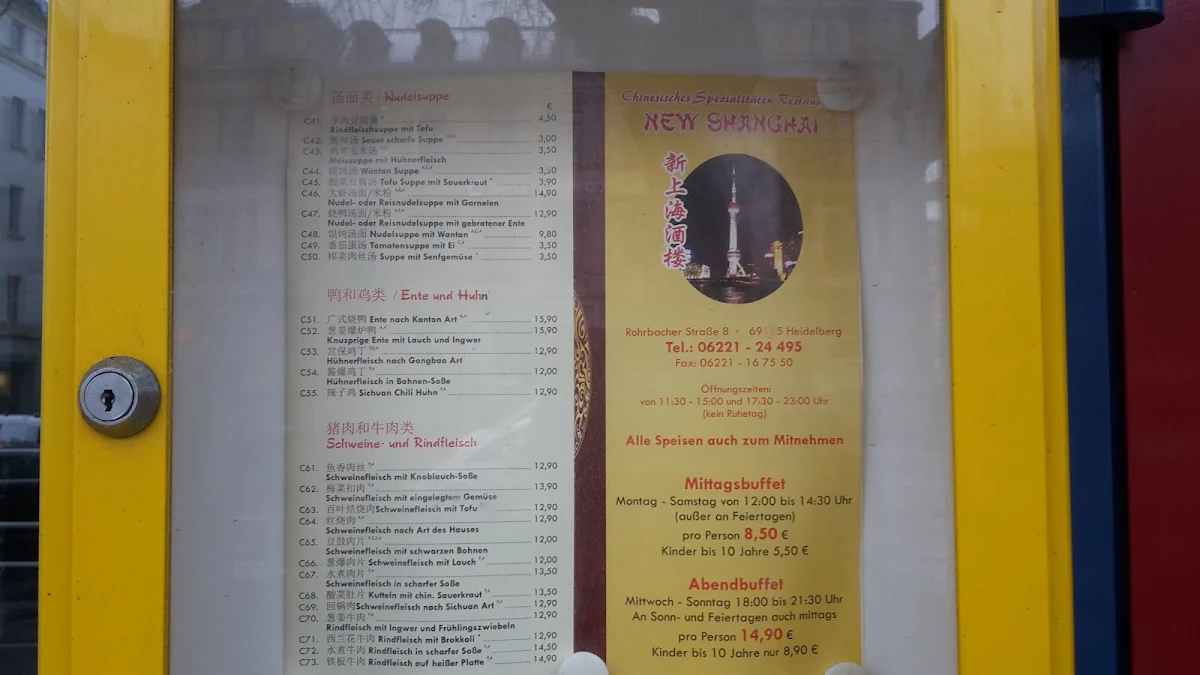 汤面类 / Nudelsuppe
€
C41. 牛肉豆腐羹 4,50
Rindfleischsuppe mit Tofu
C42. 酸辣汤 Sauer scharfe Suppe 3,00
C43. 鸡茸玉米汤 3,50
Maissuppe mit Hühnerfleisch
C44. 馄饨汤 Wantan Suppe 3,50
C45. 酸菜豆腐汤 Tofu Suppe mit Sauerkraut 3,90
C46. 大虾汤面/米粉 14,90
Nudel- oder Reisnudelsuppe mit Garnelen
C47. 烧鸭汤面/米粉 12,90
Nudel- oder Reisnudelsuppe mit gebratener Ente
C48. 馄饨汤面 Nudelsuppe mit Wantan 9,80
C49. 番茄蛋汤 Tomatensuppe mit Ei 3,50
C50. 榨菜肉丝汤 Suppe mit Senfgemüse 3,50
鸭和鸡类 / Ente und Huhn
C51. 广式烧鸭 Ente nach Kanton Art 15,90
C52. 葱姜爆炉鸭 15,90
Knusprige Ente mit Lauch und Ingwer
C53. 宫保鸡丁 12,90
Hühnerfleisch nach Gongbao Art
C54. 酱爆鸡丁 12,00
Hühnerfleisch in Bohnen-Soße
C55. 辣子鸡 Sichuan Chili Huhn 12,90
猪肉和牛肉类
Schweine- und Rindfleisch
C61. 鱼香肉丝 12,90
Schweinefleisch mit Knoblauch-Soße
C62. 梅菜扣肉 13,90
Schweinefleisch mit eingelegtem Gemüse
C63. 百叶结烧肉Schweinefleisch mit Tofu 12,90
C64. 红烧肉 12,90
Schweinefleisch nach Art des Hauses
C65. 豆鼓肉片 12,00
Schweinefleisch mit schwarzen Bohnen
C66. 葱爆肉片 Schweinefleisch mit Lauch 12,00
C67. 水煮肉片 13,50
Schweinefleisch in scharfer Soße
C68. 酸菜肚片 Kutteln mit chin. Sauerkraut 13,50
C69. 回锅肉Schweinefleisch nach Sichuan Art 12,90
C70. 葱姜牛肉 12,90
Rindfleisch mit Ingwer und Frühlingszwiebeln
C71. 西兰花牛肉 Rindfleisch mit Brokkoli 12,90
C72. 水煮牛肉 Rindfleisch in scharfer Soße 14,50
C73. 铁板牛肉 Rindfleisch auf heißer Platte 14,90
Chinesisches Spezialitäten Restaurant
NEW SHANGHAI
新上海酒楼
Rohrbacher Straße 8 · 69 5 Heidelberg
Tel.: 06221 - 24 495
Fax: 06221 - 16 75 50
Öffnungszeiten:
von 11:30 - 15:00 und 17:30 - 23:00 Uhr
(kein Ruhetag)
Alle Speisen auch zum Mitnehmen
Mittagsbuffet
Montag - Samstag von 12:00 bis 14:30 Uhr
(außer an Feiertagen)
pro Person 8,50 €
Kinder bis 10 Jahre 5,50 €
Abendbuffet
Mittwoch - Sonntag 18:00 bis 21:30 Uhr
An Sonn- und Feiertagen auch mittags
pro Person 14,90 €
Kinder bis 10 Jahre nur 8,90 €